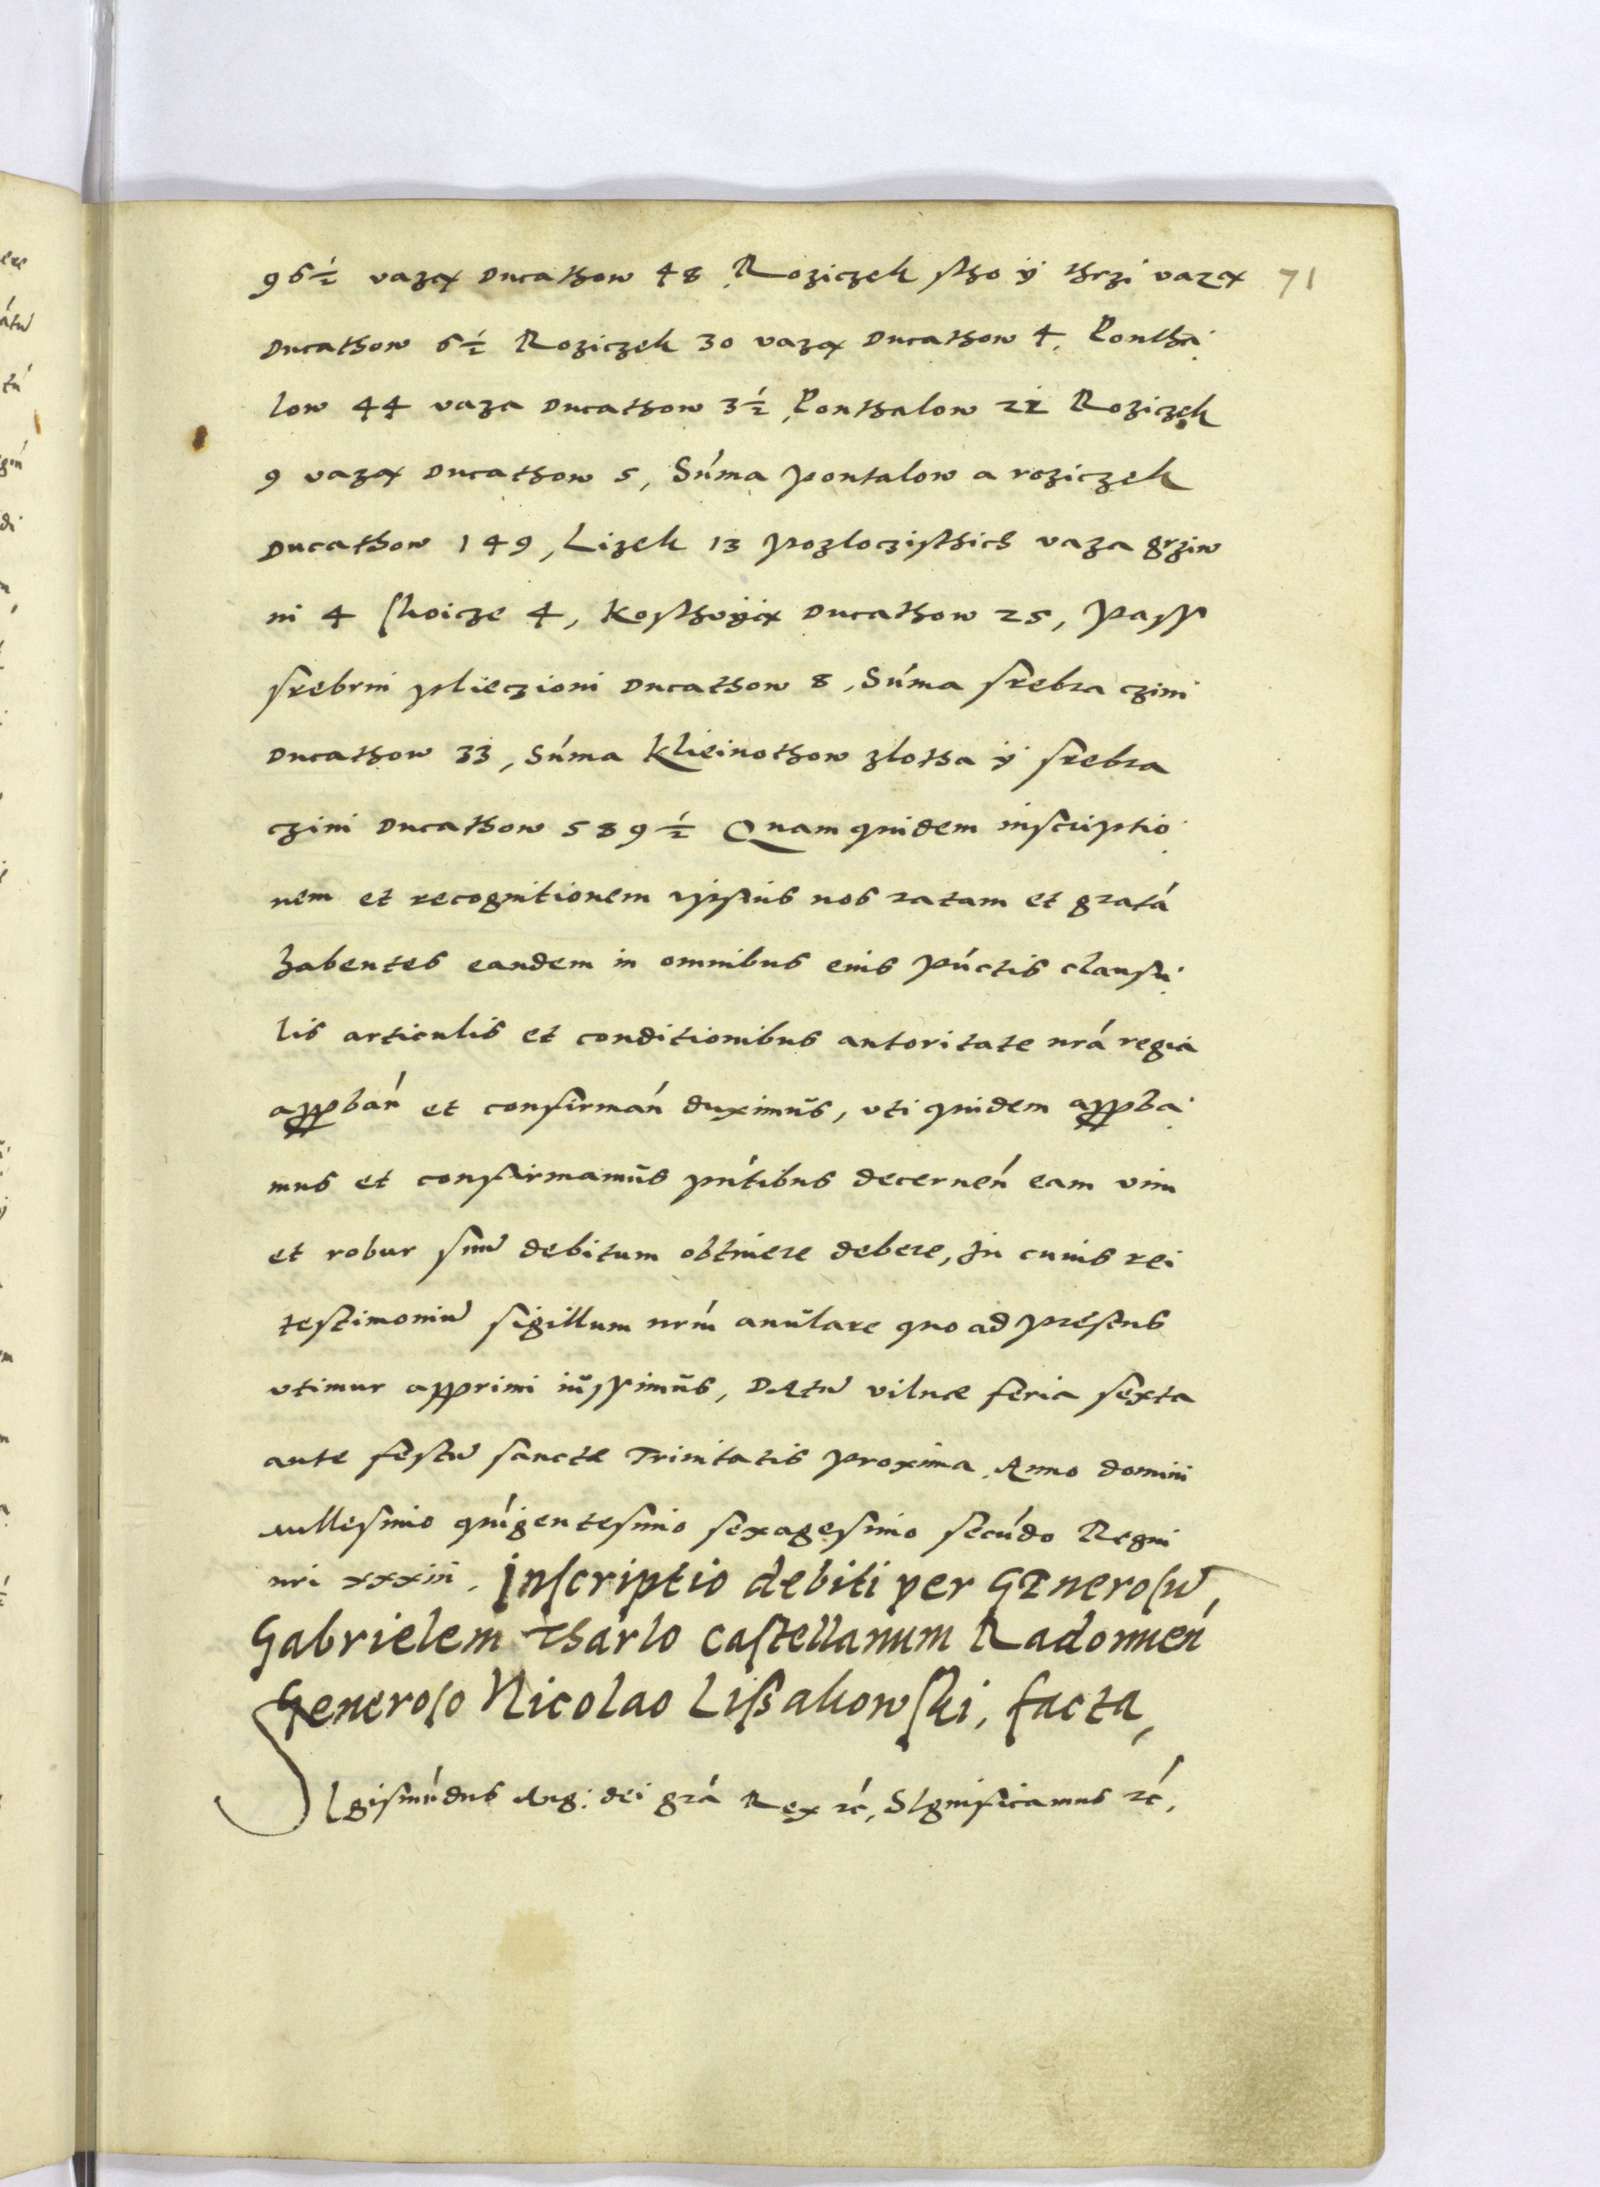 96½ vazą Ducathow 48 Roziczek stho ÿ thrzi vazą 71
Ducathow 6½ Roziczek 30 vazą Ducathow 4, Pontha
low 44 vaza Ducathow 3½ Ponthalow 21 Roziczek
9 vazą Ducathow 5, Súma pontalow a roziczek
Ducathow 149, Lizek 13 pozloczisthich vaza grziw
ni 4 skoicze 4, Kosthvÿą Ducathow 25, Pass
srebrni plieczioni Ducathow 8, Súma srebra czini
Ducathow 33, Súma Klieinothow zlotha ÿ srebra
czini Ducathow 589½ Quam quidem inscriptio
nem et recognitionem ipsius nos ratam et gratá
habentes eandem in omnibus eius púctis clausu
lis articulis et conditionibus autoritate nrá regia
appbań et confirmań duximus, vti quidem appba
mus et confirmamus pńtibus decerneń eam vim
et robur suũ debitum obtinere debere, In cuius rei
testimoniũ sigillum nrm̃ anulare quo ad presens
vtimur apprimi iussimus, DAtũ vilnæ feria sexta
ante festũ sanctæ Trinitatis proxima, Anno domini
millesimo quígentesimo sexagesimo secúdo Regni
nri xxxiii. Inscriptio debiti per GEnerosũ,
Gabrielem Tharlo castellanum Radomień
Generoso Nicolao Lissakowski, facta,
SIgismúdus Aug: dei grá Rex rć, SIgnificamus rć,